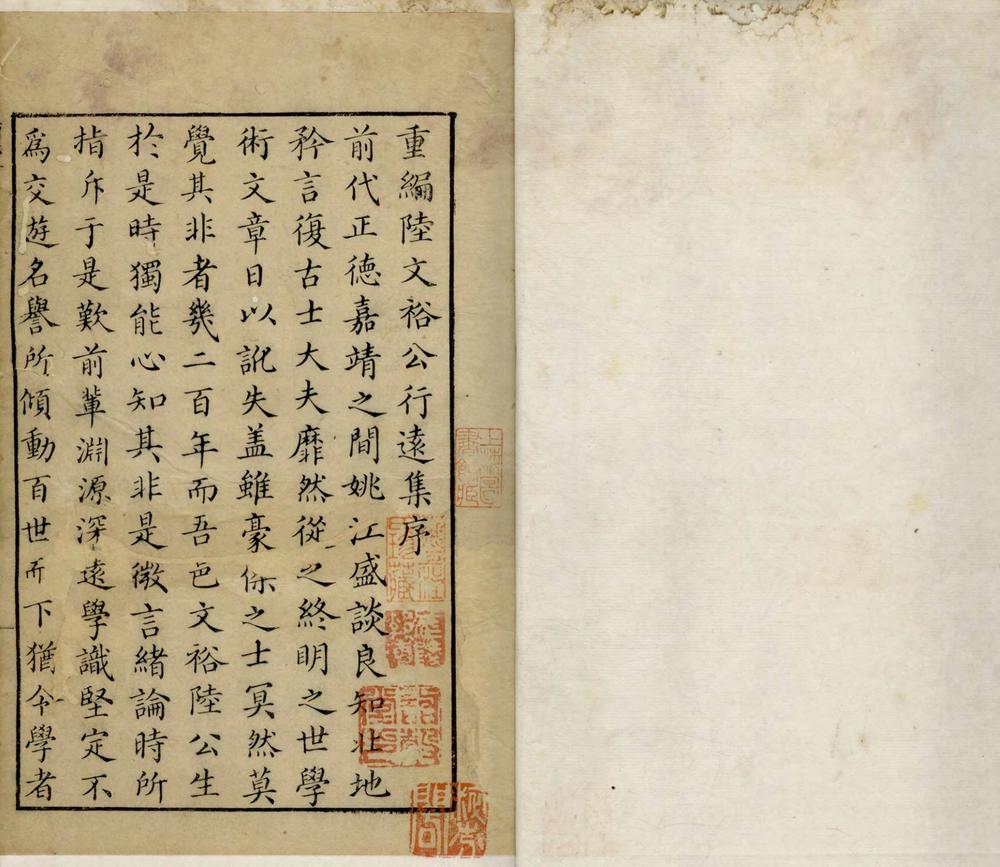 重編陸文裕公行遠集序
前代正德嘉靖之間姚江盛談良知北地
矜言復古士大夫靡然從之終明之世學
術文章日以訛失盖雖豪傑之士冥然莫
覺其非者幾二百年而吾邑文裕陸公生
於是時獨能心知其非是微言緒論時所
指斥于是歎前輩淵源深遠學識堅定不
爲交遊名譽所傾動百世而下猶令學者